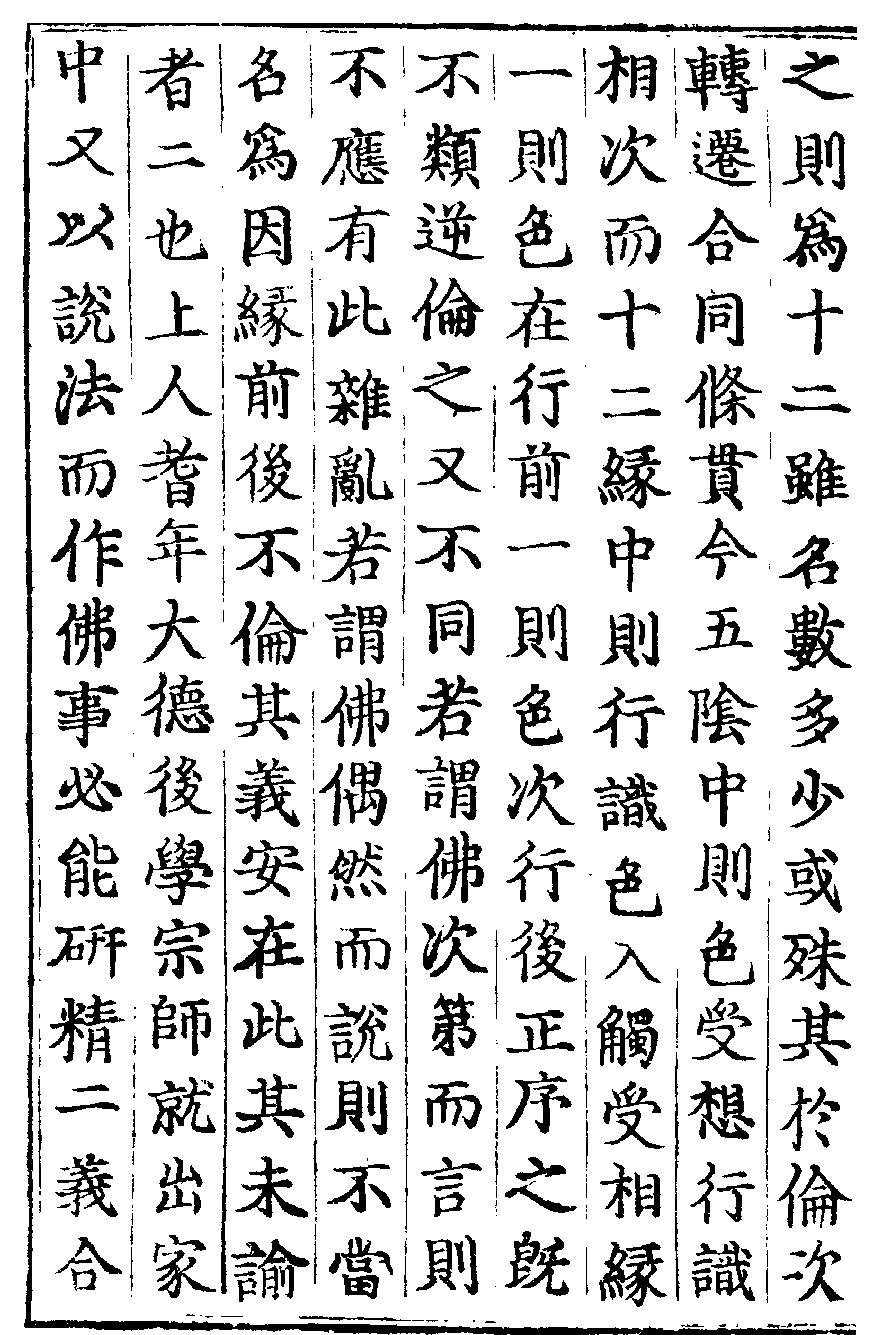 之則爲十二雖名數多少或殊其於倫次
轉遷合同條貫今五陰中則色受想行識
相次而十二緣中則行識色入觸受相緣
一則色在行前一則色次行後正序之旣
不類逆倫之又不同若謂佛次第而言則
不應有此雜亂若謂佛偶然而說則不當
名爲因緣前後不倫其義安在此其未諭
者二也上人耆年大德後學宗師就出家
中又以說法而作佛事必能硏精二義合